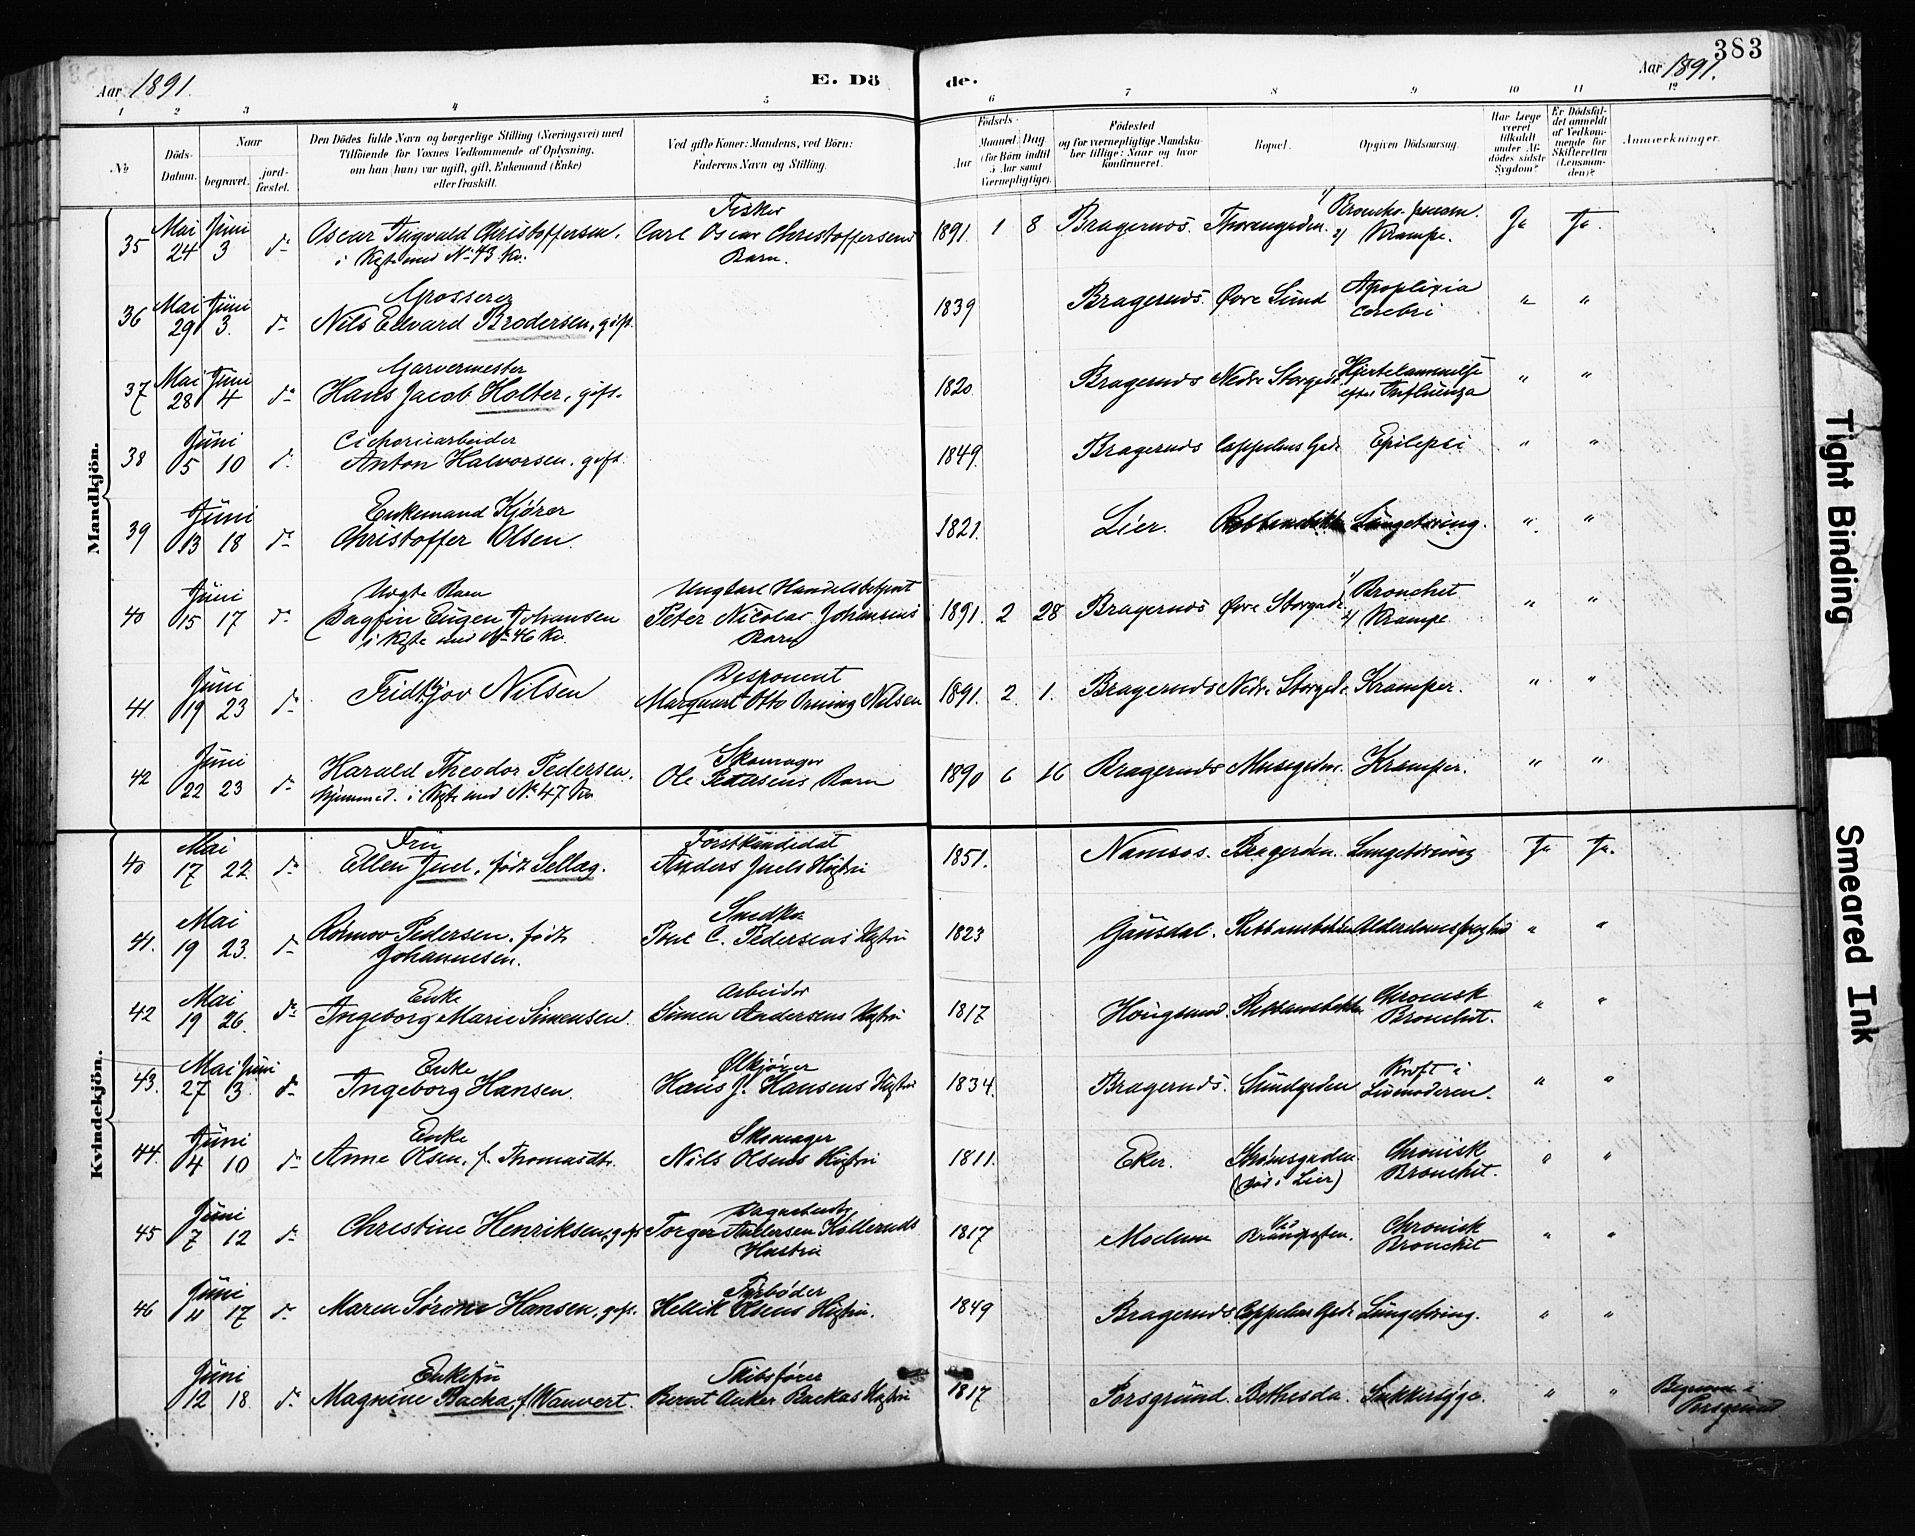 383
Aar 1891. E. Dö de. Aar 1891.
1 2 3 4 5 6 7 8 9 10 11 12
No
Döds-Datum.
Naar
begravet.
jord-fæstet.
Den Dödes fulde Navn og borgerlige Stilling (Næringsvei) med
Tilföiende for Voxnes Vedkommende af Oplysning,
om han (hun) var ugift, gift, Enkemand (Enke)
eller fraskilt.
Ved gifte Koner: Mandens, ved Börn:
Faderens Navn og Stilling.
Födsels-
Aar
Maaned Dag
(for Börn indtil
5 Aar samt
Værnepligtige).
Födested
og for vernepligtige Mandsku-
ber tillige: Naar og hvor
konfirmeret.
Bopæl.
Opgiven Dödsaarsag.
Har Læge
været
tilkaldt
under Af-
dödes sidste
Sygdom?
Er Dödsfal-
det anmeldt
af Vedkom-
mende for
Skifteretten
(Lensman-
den)?
Anmærkninger.
Mandkjön.
35 Mai 24 Juni 3 do Oscar Ingvald Christoffersen. i Kiste med No 43 Kv. Fisker Carl Oscar Christoffersens Barn. 1891 1 8 Bragernæs. 1/ Broncho-pneum. 2/ Krampe. Ja Ja.
36 Mai 29 Juni 3. do Grosserer Nils Edvard Brodersen, gift. 1839 Bragernæs. Øvre Sund Apoplexia Cerebri " "
37 Mai 28 Juni 4 do Garvermester Hans Jacob Holter, gift. 1820 Bragernæs Nedre Storgade Hjertelammelse efter Influenza " "
38 Juni 5 10 do Cichoriearbeider Anton Halvorsen, gift. 1849. Bragernæs Cappelens Gade Epilepsi " "
39 Juni 13 18 do Enkemand Kjører Christoffer Olsen. 1821. Lier. Lungetæring. " "
40 Juni 15 17 do Uægte Barn Dagfin Eugen Johansen i Kiste med No 46 Kv. Ungkarl Handelsbetjent Peter Nicolai Johansens Barn 1891. 2 28 Bragernæs Øvre Storgade 1/ Bronchit 2/ Krampe " "
41. Juni 19 23 do Fridtjov Nilsen Disponent Marquart Otto Orning Nilsen 1891. 2. 1. Bragernæs Nedre Storgade Kramper. " "
42 Juni 22 23 do Harald Theodor Pedersen, hjemmed. i Kiste med No 47 Kv. Skomager Ole Pedersens Barn 1890 6 16 Bragernæs Kramper. " "
Kvindekjön.
40 Mai 17 22 do Fru Ellen Juel, født Sellæg. Forstkandidat Anders Juels Hustru 1851. Namsos. Lungetæring Ja Ja.
41. Mai 19 23. do Pedersen, født Johannesen. Snedker Poul C. Pedersens Hustru 1823 Alderdomssvaghed " "
42 Mai 19 26. do Enke Ingeborg Marie Simensen. Arbeider Simen Andersens Hustru 1817 Hougsund Chronisk Bronchit. " "
43. Mai 27 Juni 3. do Enke Ingeborg Hansen. Ølkjører Hans J. Hansens Hustru 1834. Bragernæs. Sundgaden Kræft i Livmoderen. " "
44. Juni 4 10 do Enke Anne Olsen, f. Thomasdtr. Skomager Nils Olsens Hustru 1811. Eker. Strømsgaden. (død i Lier) Chronisk Bronchit. " "
45 Juni 7 12 do Christine Henriksen, gift Torger Andersen Hustru 1817 Modum Chronisk Bronchit " "
46 Juni 11 17 do Maren Sørine Hansen, gift. Fyrbøder Hellik Olsens Hustru. 1849 Bragernæs. Cappelens Gade Lungetæring. " "
Juni 12 18. do Enkefru Magnine Backa, f. Wauvert. Skibsfører Bernt Anker Backas Hustru 1817 Porsgrund. Bethesda. Sukkersyge. " " Begravet i Porsgrund.
Tight Binding
Smeared Ink